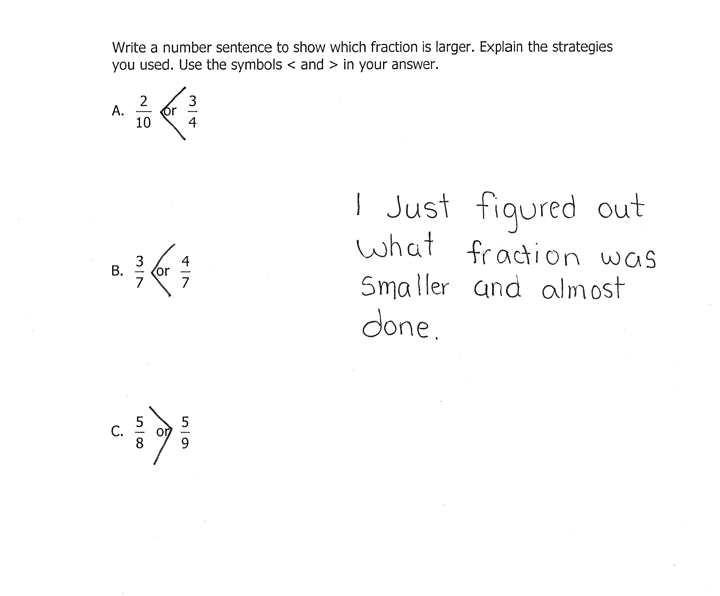 Write a number sentence to show which fraction is larger. Explain the strategies
you used. Use the symbols < and > in your answer.
A. 2/10 or < 3/4
I Just figured out
what fraction was
smaller and almost
done.
B. 3/7 or < 4/7
C. 5/8 or > 5/9